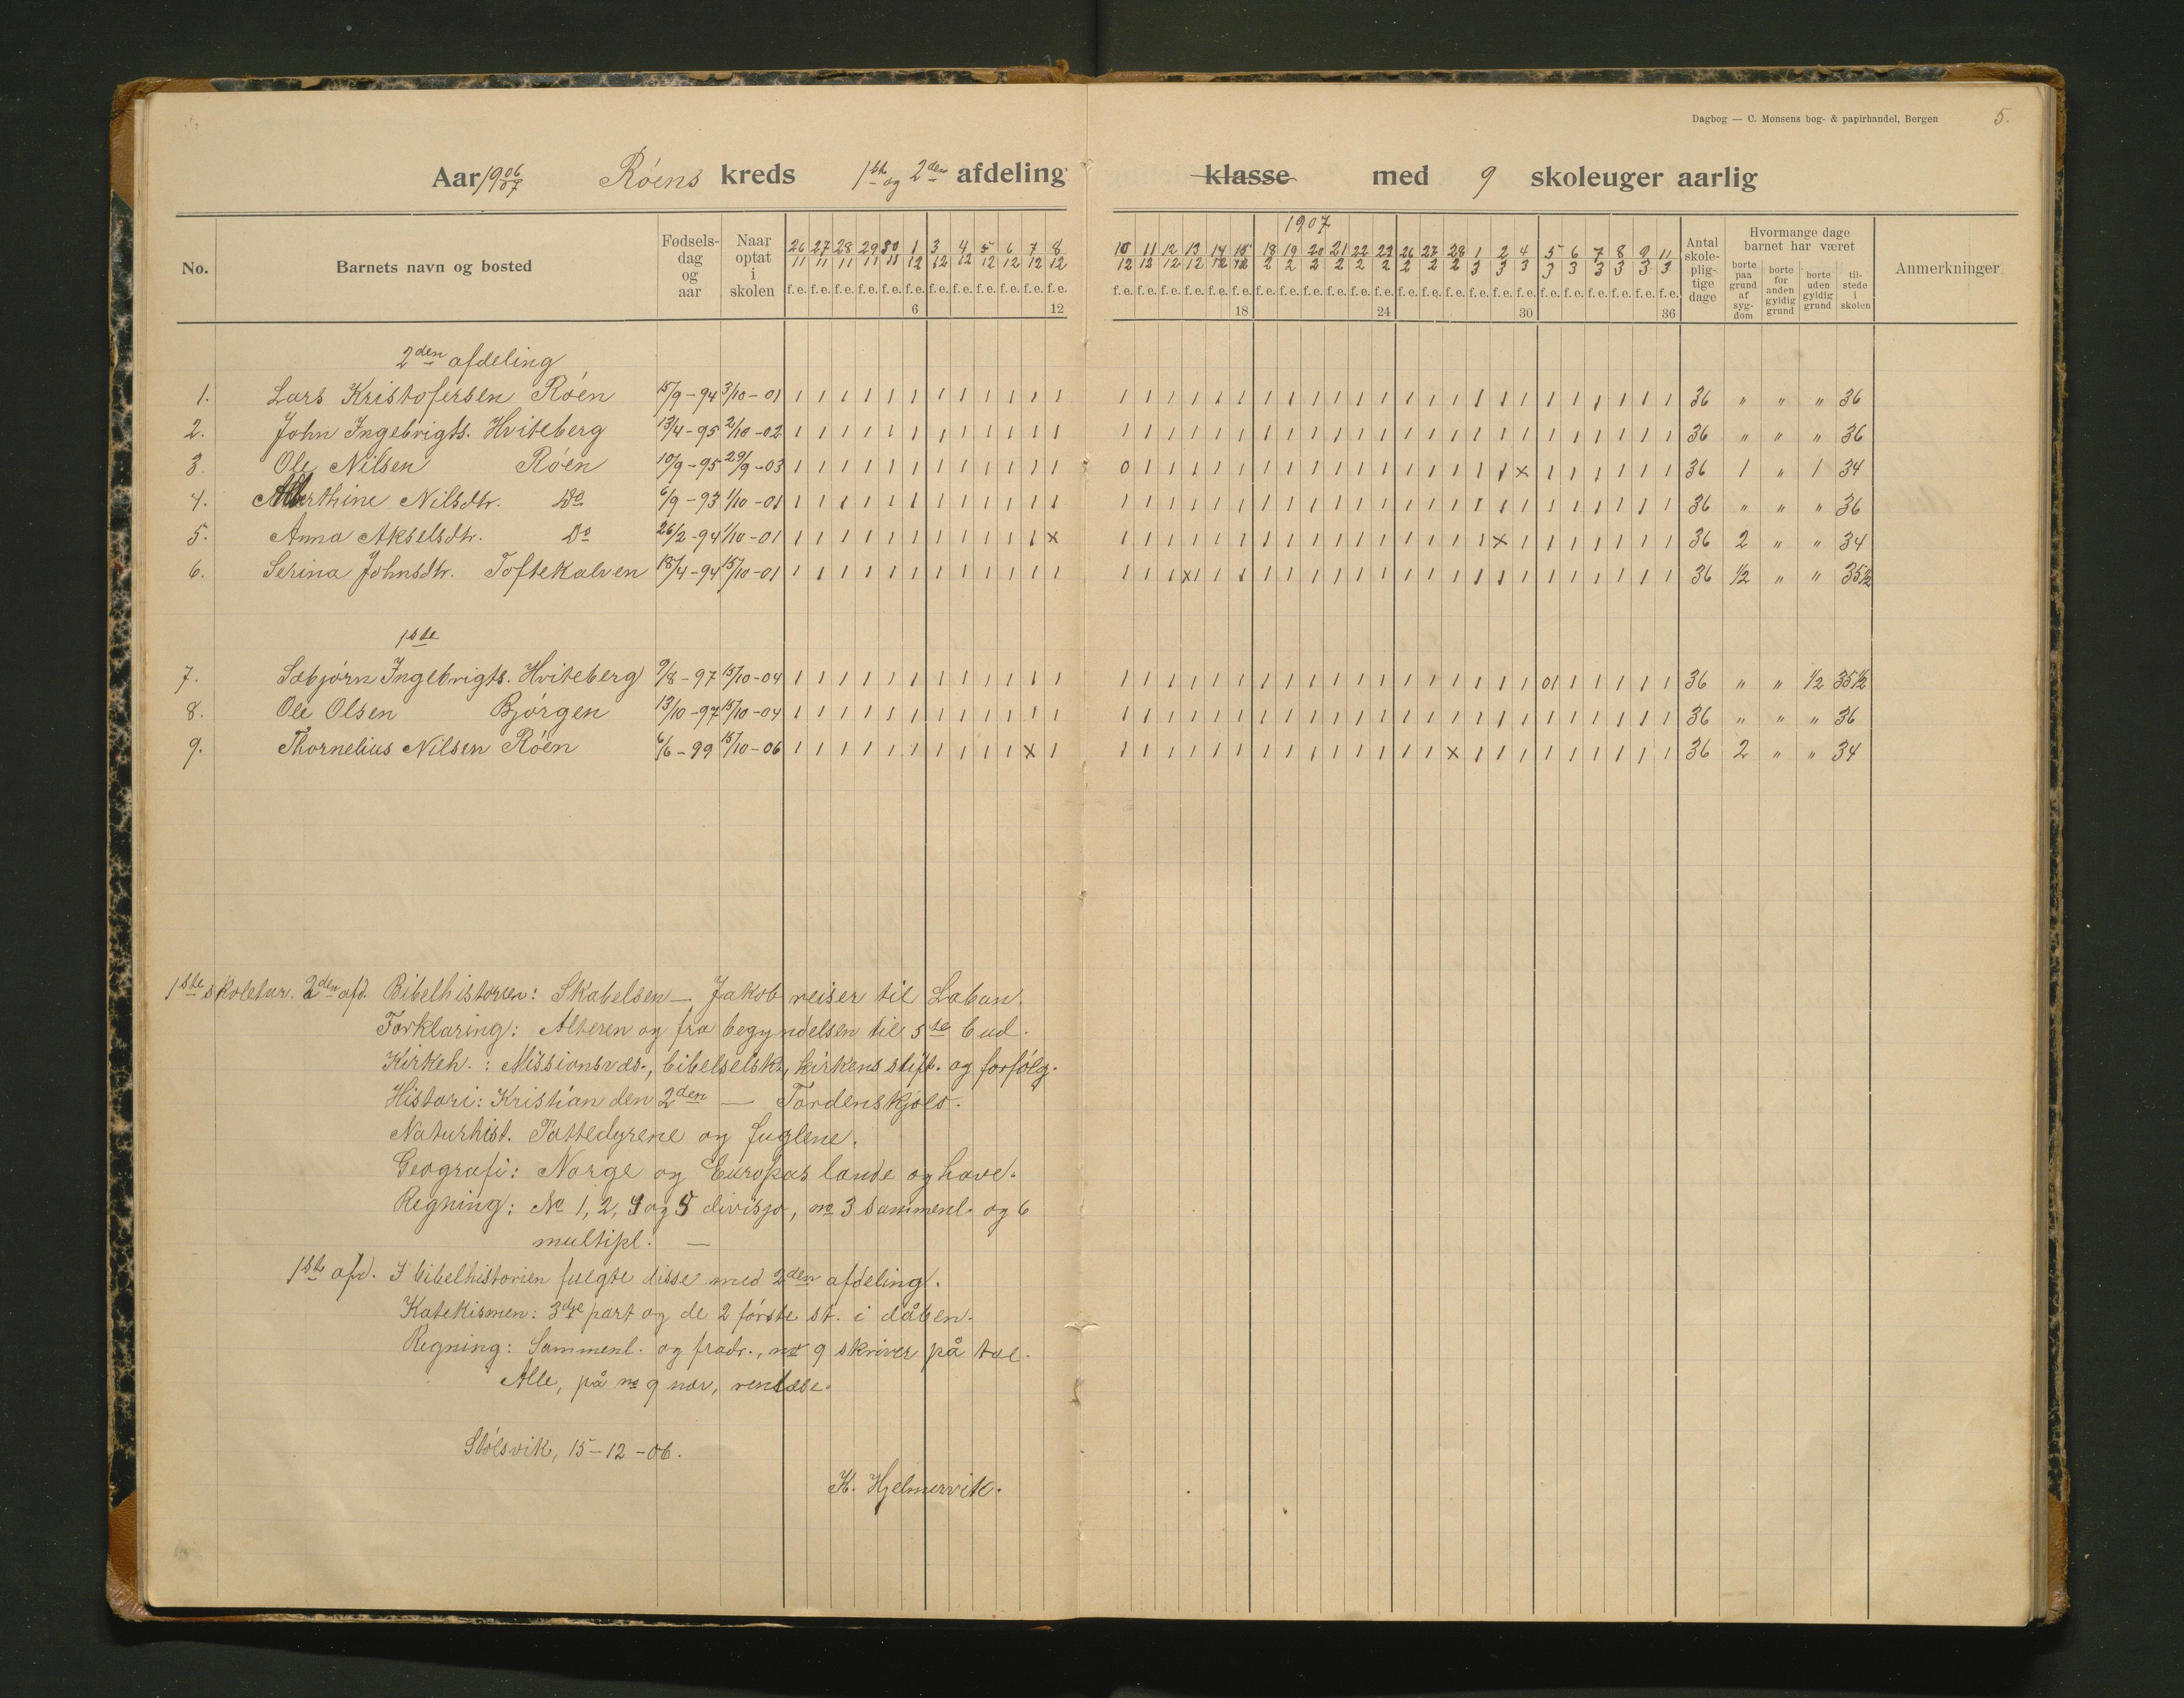 Dagbog — C. Monsens bog- & papirhandel, Bergen 5.
Aar 1906/07 Röens kreds 1ste og 2den afdeling klasse med 9 skoleuger aarlig
No. Barnets navn og bosted Fødselsdag og aar Naar optat i skolen 26/11 27/11 28/11 29/11 30/11 1/12 3/12 4/12 5/12 6/12 7/12 8/12 10/12 11/12 12/12 13/12 14/12 15/12 1907 18/2 19/2 20/2 21/2 22/2 23/2 26/2 27/2 28/2 1/3 2/3 4/3 5/3 6/3 7/3 8/3 9/3 11/3 Antal skolepligtige dage Hvormange dage barnet har været Anmerkninger
f.e. f.e. f.e. f.e. f.e. f.e. f.e. f.e. f.e. f.e. f.e. f.e. f.e. f.e. f.e. f.e. f.e. f.e. f.e. f.e. f.e. f.e. f.e. f.e. f.e. f.e. f.e. f.e. f.e. f.e. f.e. f.e. f.e. f.e. f.e. f.e. borte paa grund af sygdom borte for anden gyldig grund borte uden gyldig grund tilstede i skolen
6 12 18 24 30 36
2den afdeling
1. Lars Kristofersen Röen 15/9-94 3/10-01 1 1 1 1 1 1 1 1 1 1 1 1 1 1 1 1 1 1 1 1 1 1 1 1 1 1 1 1 1 1 1 1 1 1 1 1 36 " " " 36
2. John Ingebrigts. Hviteberg 13/4-95 2/10-02 1 1 1 1 1 1 1 1 1 1 1 1 1 1 1 1 1 1 1 1 1 1 1 1 1 1 1 1 1 1 1 1 1 1 1 1 36 " " " 36
3 Ole Nilsen Röen 10/9-95 29/9-03 1 1 1 1 1 1 1 1 1 1 1 1 0 1 1 1 1 1 1 1 1 1 1 1 1 1 1 1 1 x 1 1 1 1 1 1 36 1 " 1 34
4. Alberthine Nilsdtr. Do 6/9-93 1/10-01 1 1 1 1 1 1 1 1 1 1 1 1 1 1 1 1 1 1 1 1 1 1 1 1 1 1 1 1 1 1 1 1 1 1 1 1 36 " " " 36
5. Anna Akselsdtr. Do 26/2-94 1/10-01 1 1 1 1 1 1 1 1 1 1 1 x 1 1 1 1 1 1 1 1 1 1 1 1 1 1 1 1 x 1 1 1 1 1 1 1 36 2 " " 34
6. Serina Johnsdtr. Toftekalven 18/4-94 15/10-01 1 1 1 1 1 1 1 1 1 1 1 1 1 1 1 x1 1 1 1 1 1 1 1 1 1 1 1 1 1 1 1 1 1 1 1 1 36 1/2 " " 35 1/2
1ste
7. Sæbjörn Ingebrigts. Hviteberg 9/8-97 15/10-04 1 1 1 1 1 1 1 1 1 1 1 1 1 1 1 1 1 1 1 1 1 1 1 1 1 1 1 1 1 1 01 1 1 1 1 1 36 " " 1/2 35 1/2
8. Ole Olsen Björgen 13/10-97 15/10-04 1 1 1 1 1 1 1 1 1 1 1 1 1 1 1 1 1 1 1 1 1 1 1 1 1 1 1 1 1 1 1 1 1 1 1 1 36 " " " 36
9. Thornelius Nilsen Röen 6/6-99 15/10-06 1 1 1 1 1 1 1 1 1 1 x 1 1 1 1 1 1 1 1 1 1 1 1 1 1 1 x 1 1 1 1 1 1 1 1 1 36 2 " " 34
1ste skoletur. 2den afd. Bibelhistorien: Skabelsen — Jakob reiser til Laban.
Forklaring: Alteren og fra begyndelsen til 5te bud.
Kirkeh.: Missionsvæs., bibelselsk., kirkens stift. og forfölg.
Histori: Kristian den 2den — Tordenskjold.
Naturhist. Pattedyrene og fuglene.
Geografi: Norge og Europas lande og have.
Regning: No 1, 2, 4 og 5 divisjo, no 3 sammenl. og 6
multipl. —
1ste afd. I bibelhistorien fulgte disse med 2den afdeling.
Katekismen: 3die part og de 2 förste st. i dåben.
Regning: Sammenl. og fradr., no 9 skriver på tal.
Alle, på no 9 nær, renlæse.
Stölsvik, 15-12-06.
K. Hjelmervik.